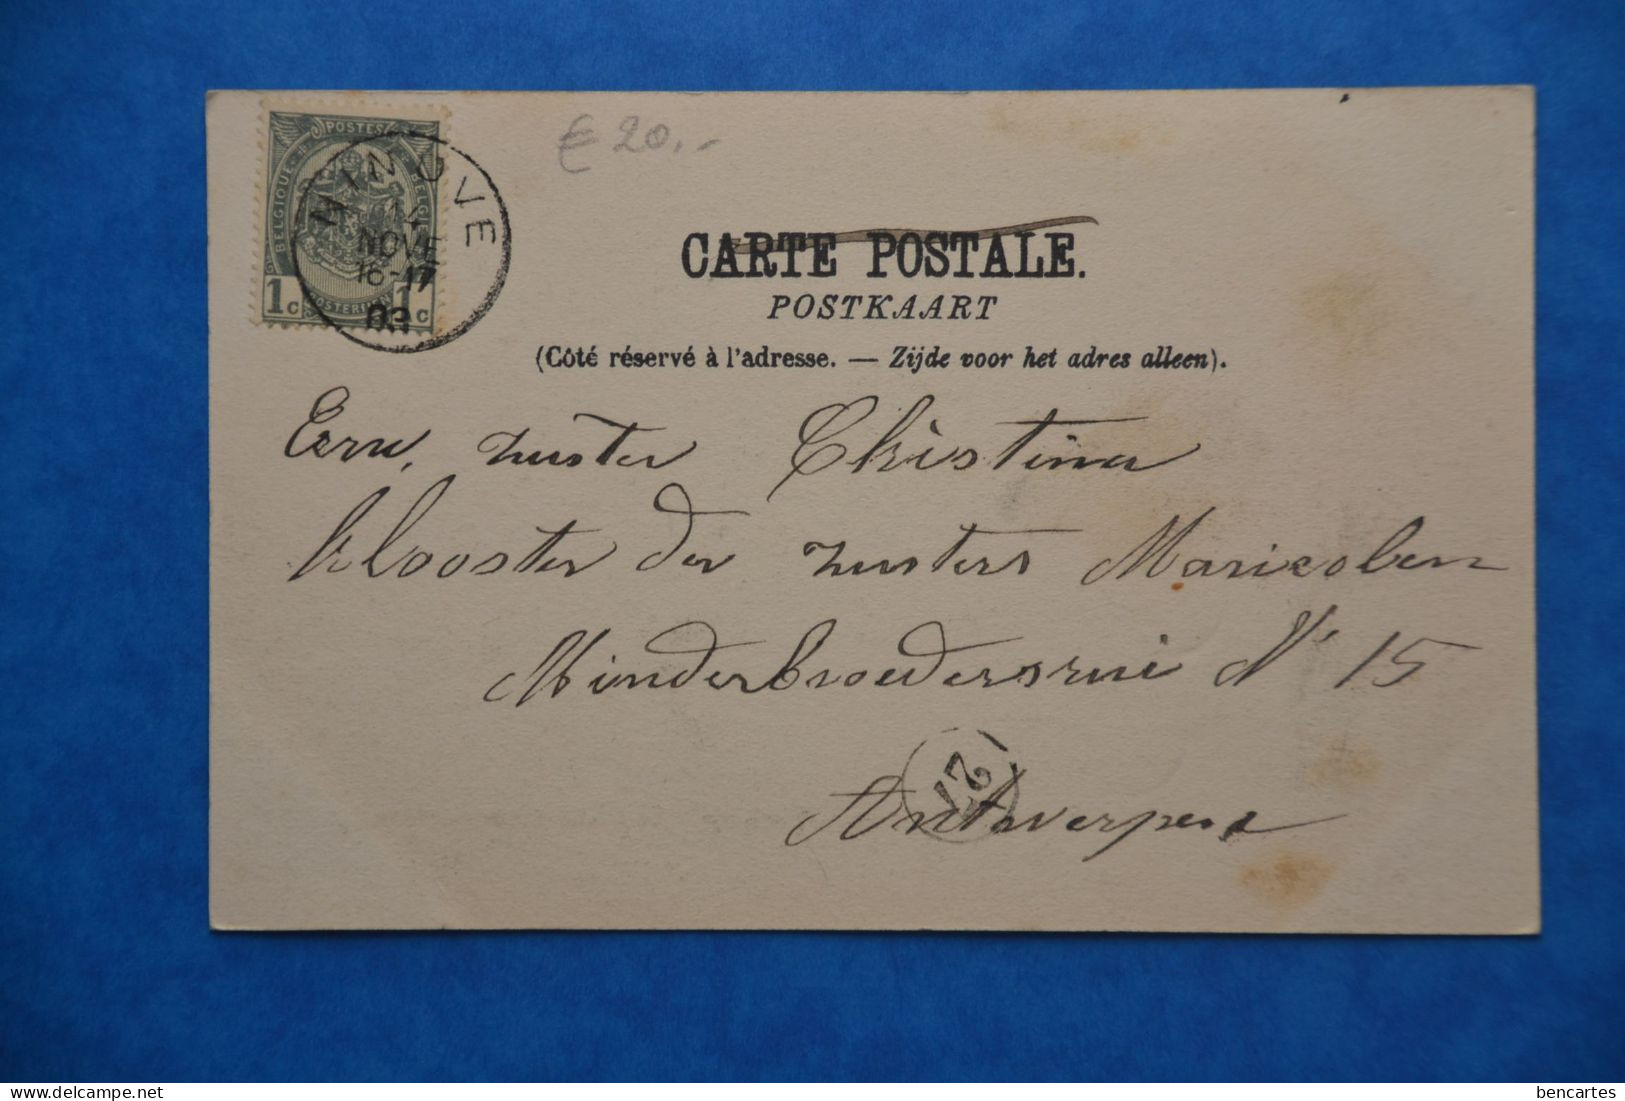 € 20.-
POSTES
BELGIQUE
BELGIE
POSTERIJEN
1c 1c
NINOVE
14
NOVE
16-17
03
CARTE POSTALE.
POSTKAART
(Côté réservé à l'adresse. — Zijde voor het adres alleen).
Eerw. zuster Christina
klooster der zusters Maricolen
Minderbroedersrui No 15
27
Antwerpen
delcampe.net
bencartes